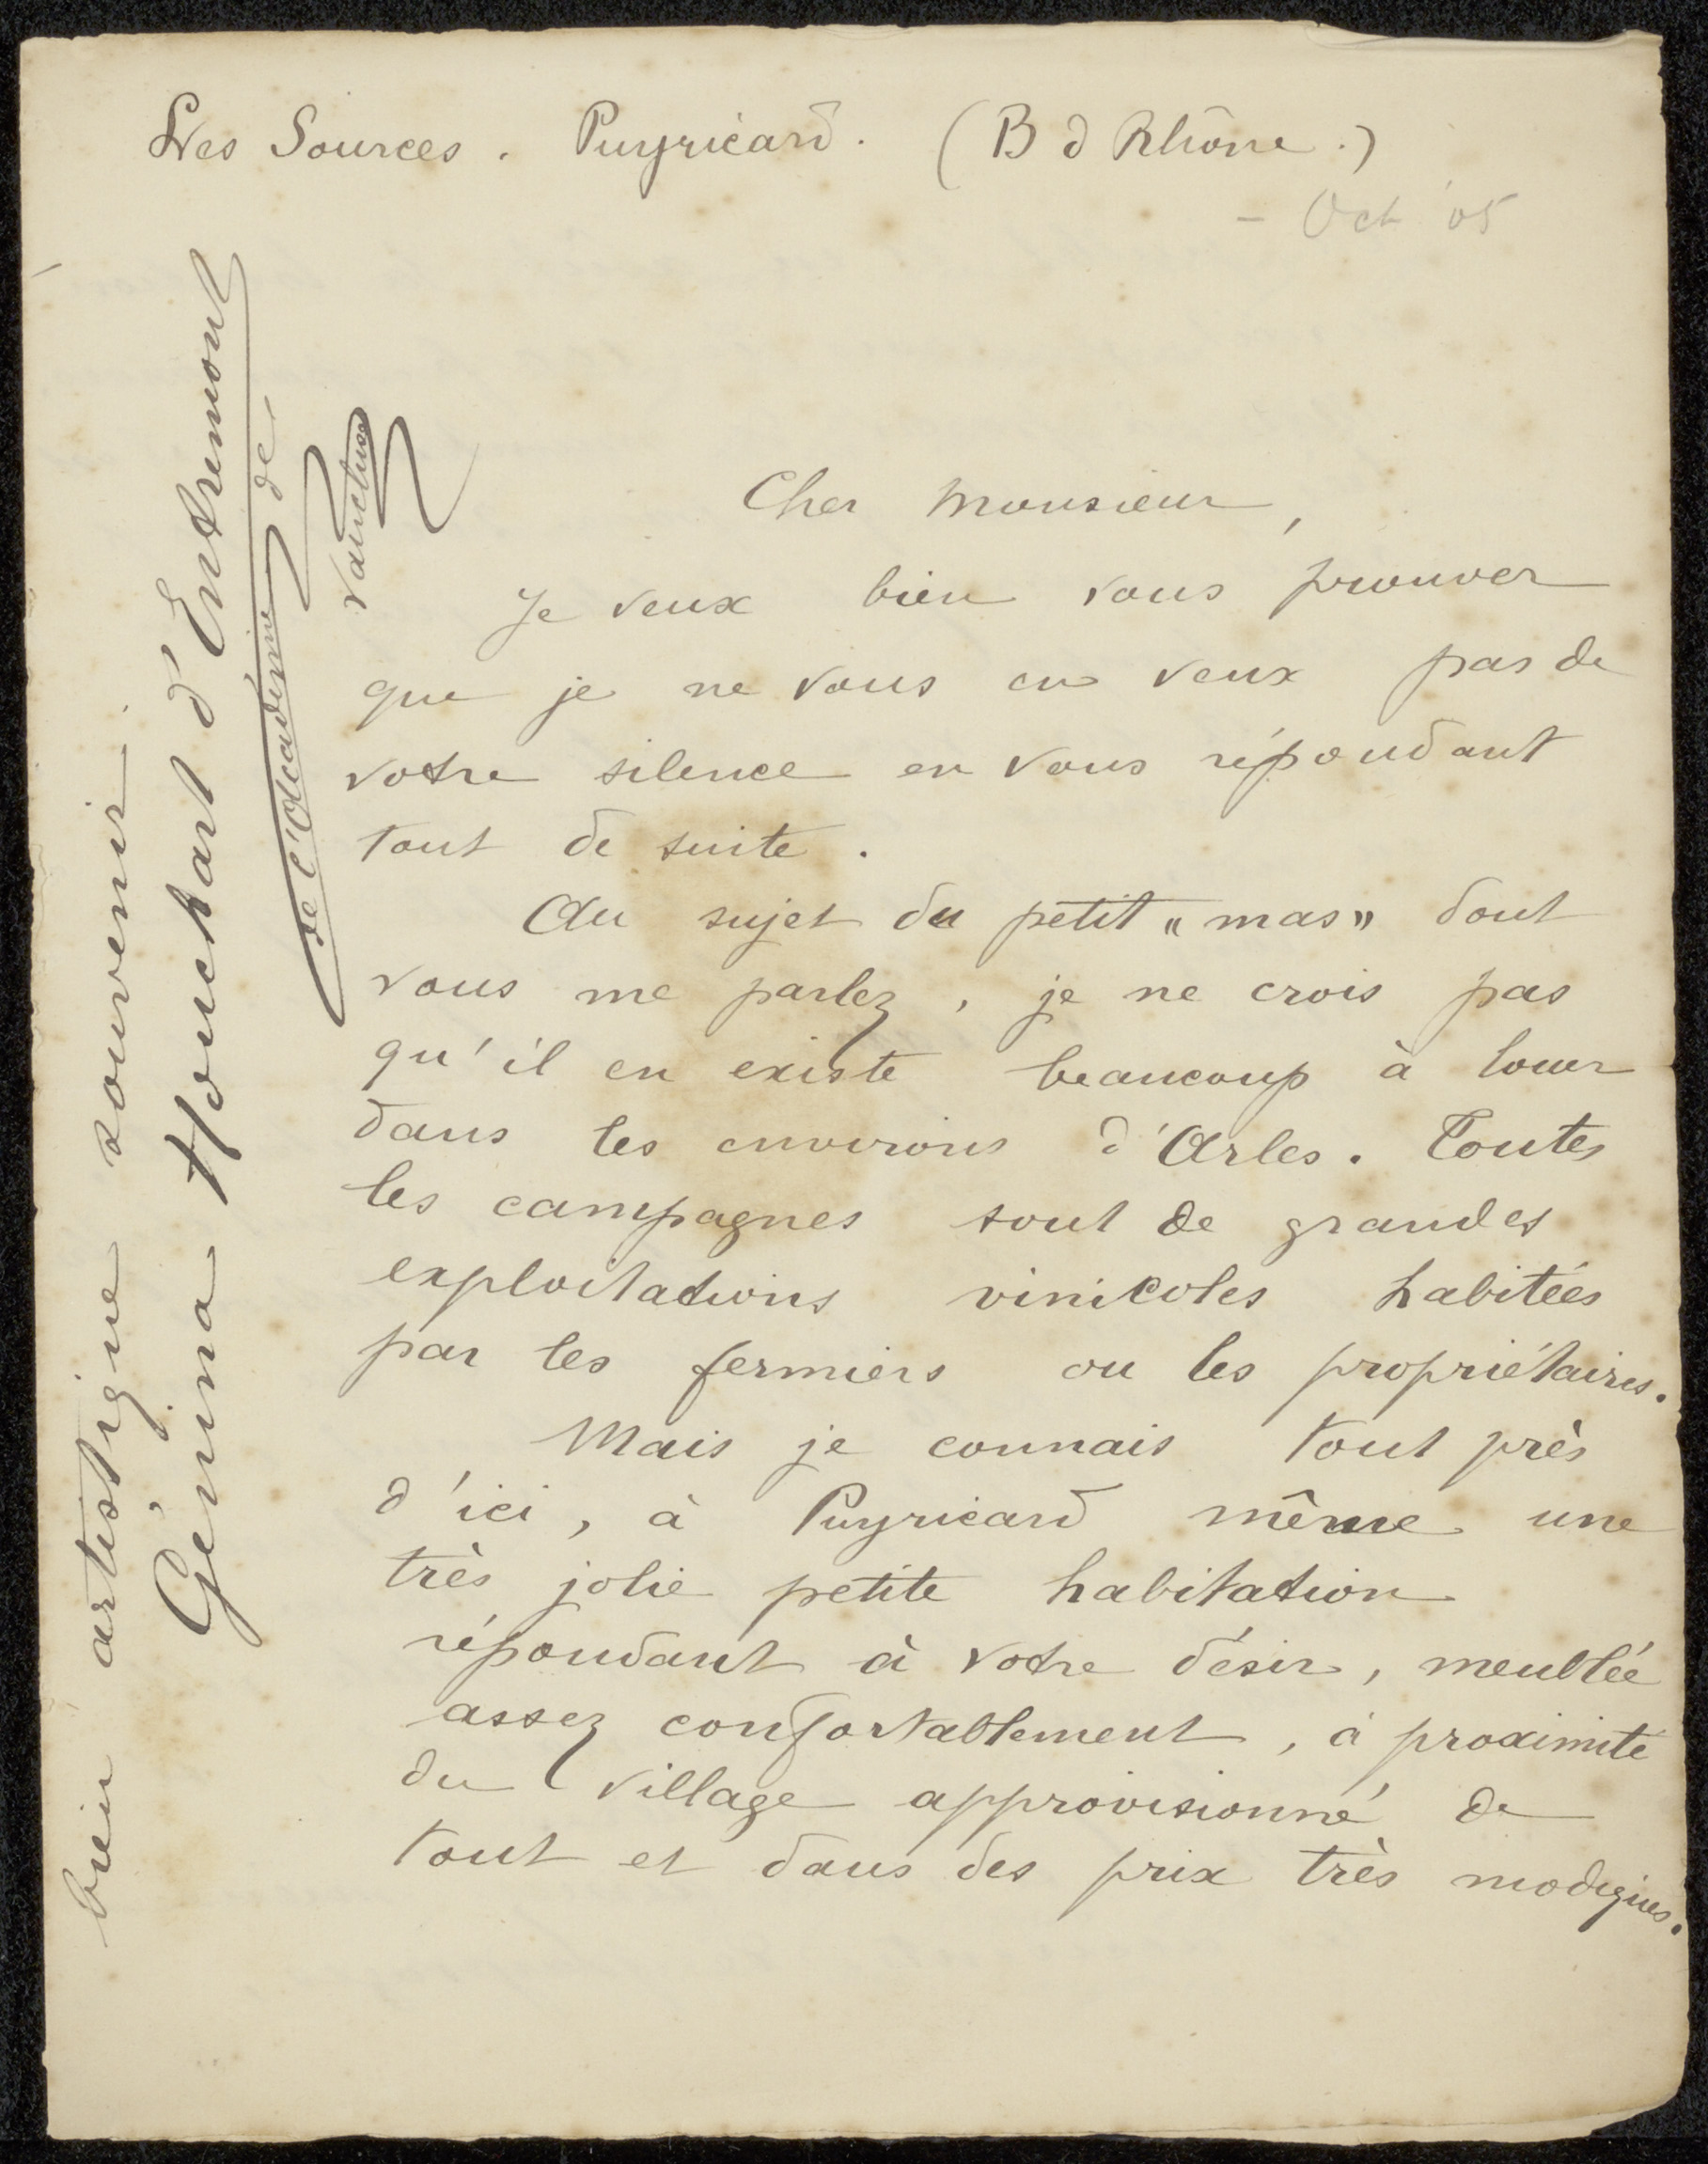 Les Sources. Puyricard. (B d Rhône.)
- Oct 05
Cher Monsieur,
Je veux bien vous prouver
que je ne vous en veux pas de
votre silence en vous répondant
tout de suite.
Au sujet du petit "mas" dont
vous me parlez, je ne crois pas
qu'il en existe beaucoup à louer
dans les environs d'Arles. Toutes
les campagnes sont de grandes
exploitations vinicoles habitées
par les fermiers ou les propriétaires.
Mais je connais tout près
d'ici, à Puyricard même une
très jolie petite habitation
répondant à votre désir, meublée
assez confortablement, à proximité
du village approvisionné de
tout et dans des prix très modiques.
bien artistique souvenir.
Génina Houchart d'Entremont
de l'Académie de
Vaucluse